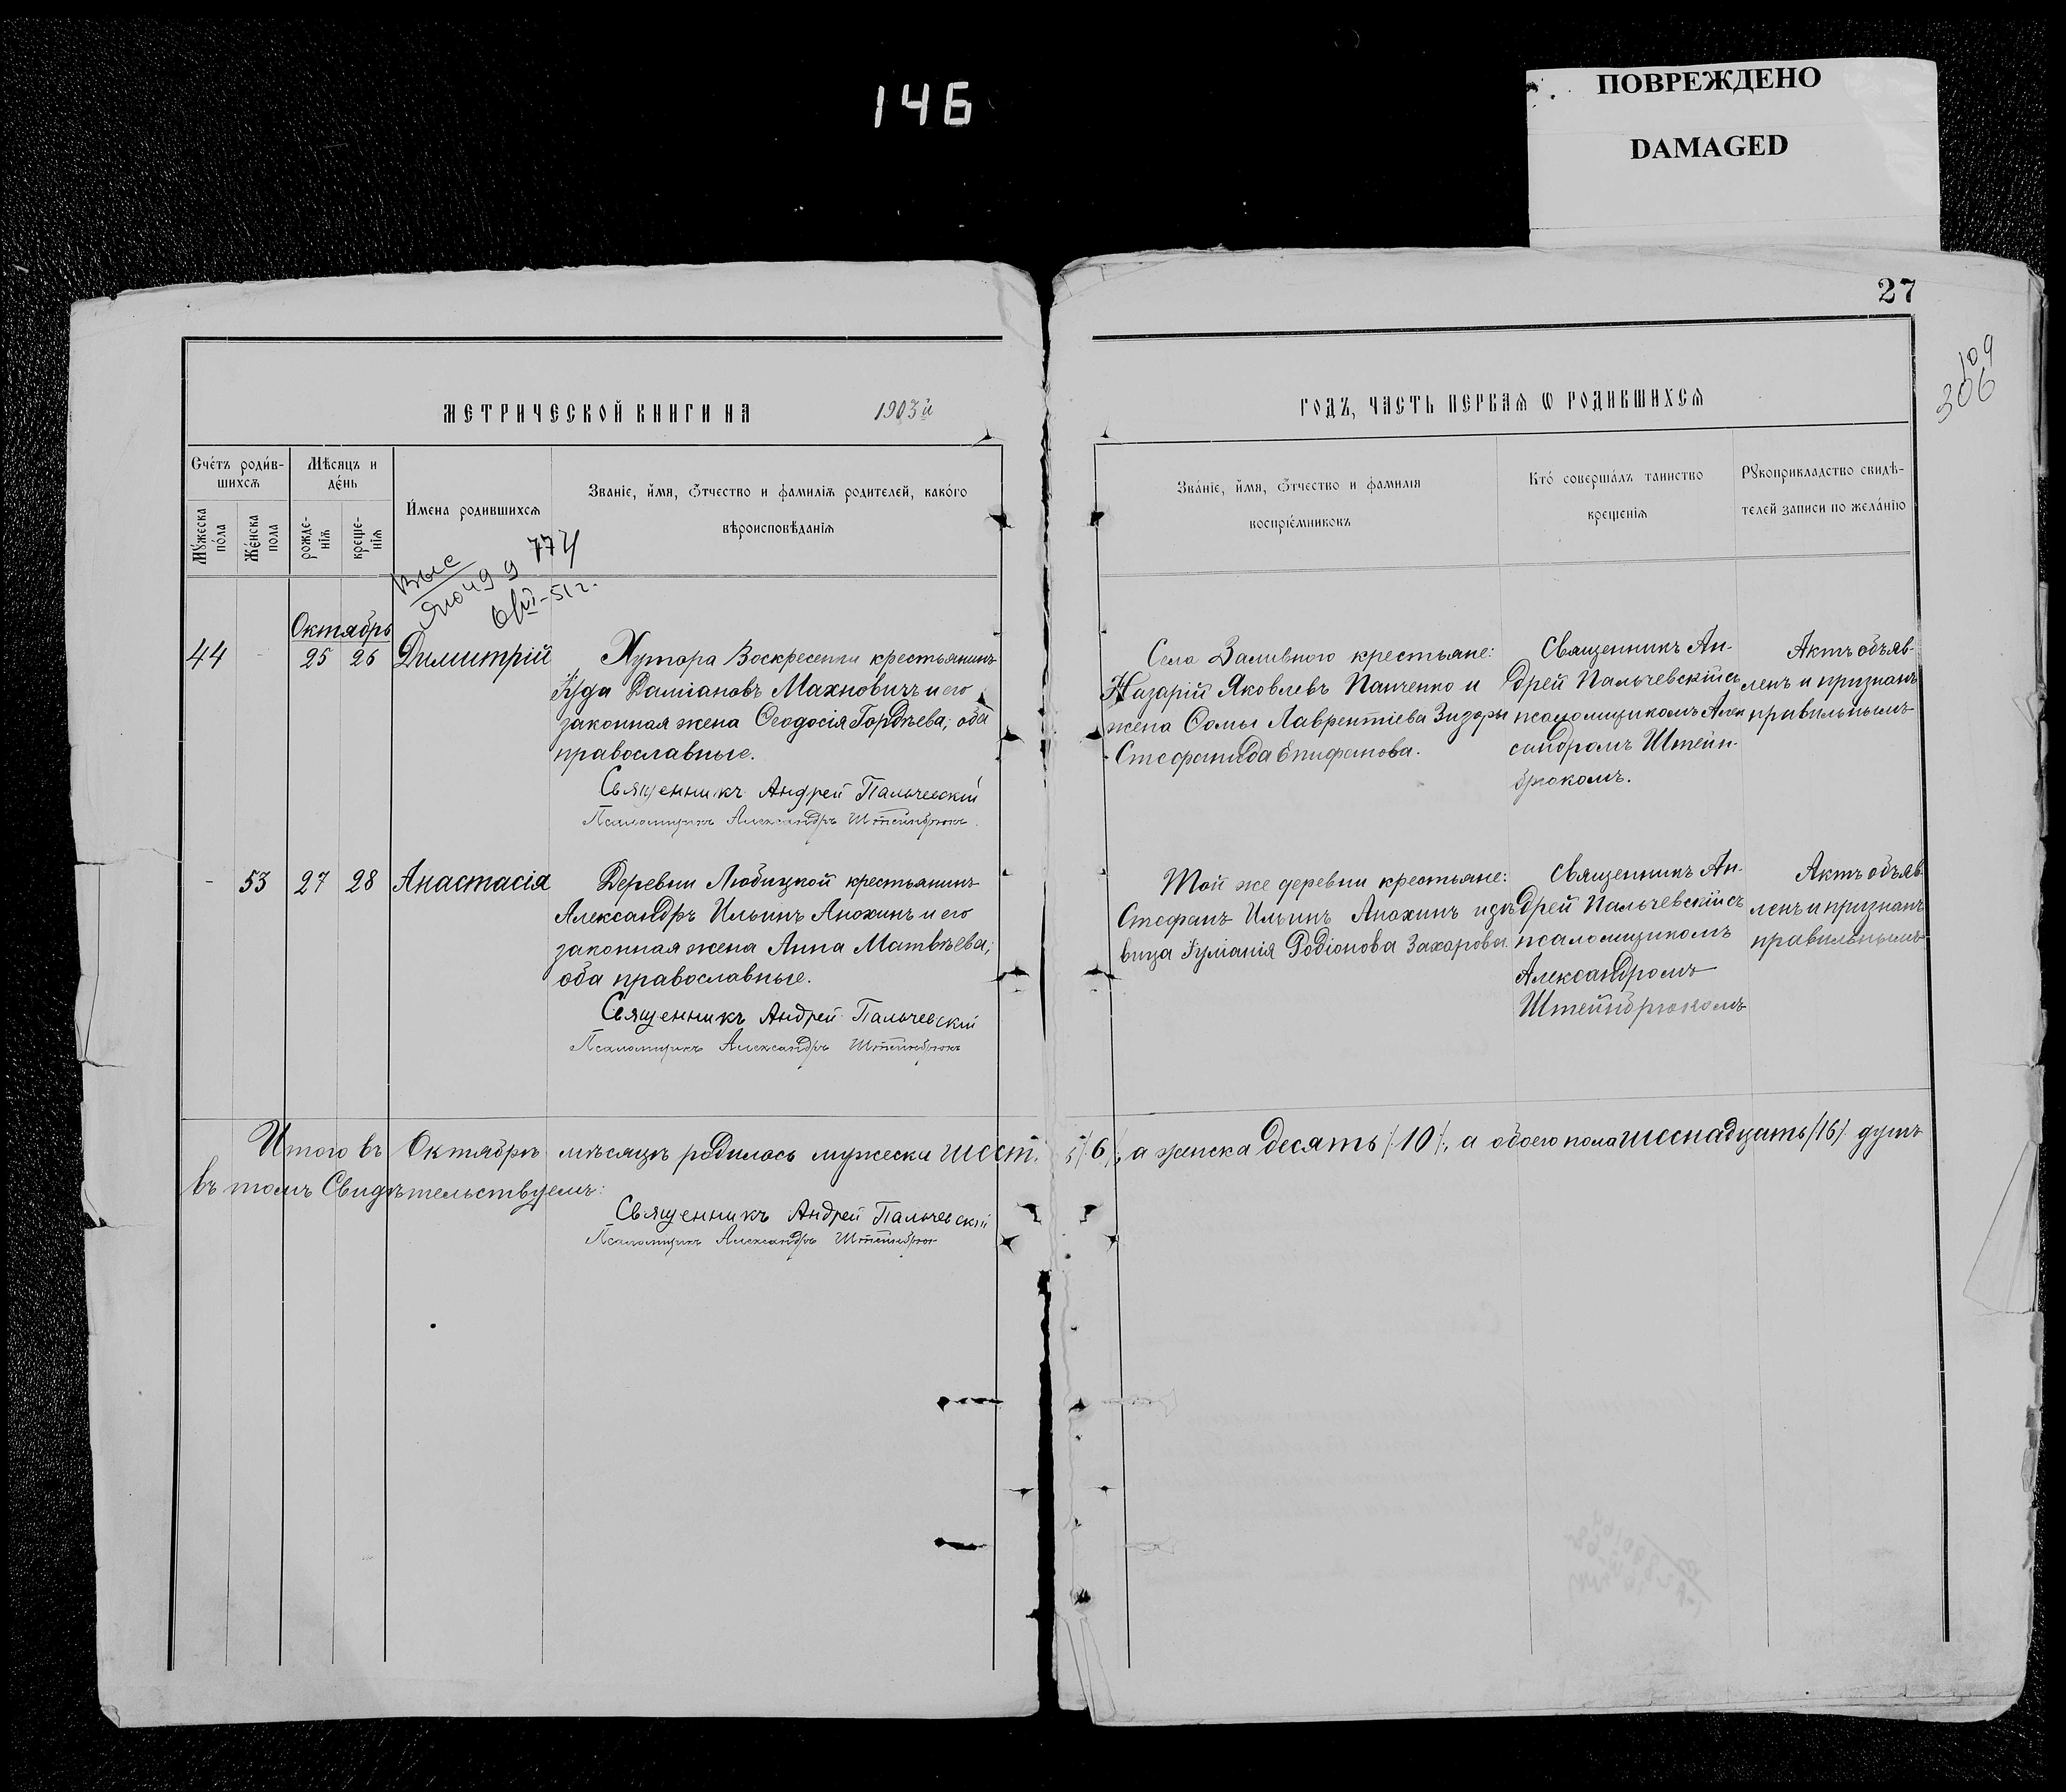 146
ПОВРЕЖДЕНО
DAMAGED
27
109
306
МЕТРИЧЕСКОЙ КНИГИ НА 1903й
ГОДЪ, ЧАСТЬ ПЕРВАѦ Ѡ РОДИВШИХСѦ
Счéтъ роди́в-
шихсѧ
Мꙋ́жеска
по́ла
Же́нска
пола
Мѣ́сяцъ и
де́нь
рожде-
нїѧ
креще-
нїѧ
И́мена родившихсѧ
Званїе, и́мя, ѻ́тчество и фамилїѧ родителей, како́го
вѣроисповѣ́данїѧ
Зва́нїе, и́мя, ѻ́тчество и фамилїѧ
воспрїе́мниковъ
Кто́ соверша́лъ таинство
крещенїѧ
Рꙋкоприкладство свидѣ-
телей записи по жела́нїю
774
6/VI-51 г.
Октябрь
44 25 26 Димитрій
Хутора Воскресенки крестьянинъ
Іуда Даміановъ Махновичъ и его
законная жена Ѳеодосія Гордѣева; оба
православные.
Священникъ Андрей Пальчевскій
Псаломщикъ Александръ Штейнбрюкъ.
Села Заливного крестьяне:
Назарій Яковлевъ Панченко и
жена Ѳомы Лаврентіева Зизоры
Стефанида Епифанова.
Священникъ Ан-
дрей Пальчевскій съ
псаломщикомъ Алек
сандромъ Штейн-
брюкомъ.
Актъ объяв-
ленъ и признанъ
правильнымъ
- 53 27 28 Анастасія
Деревни Любицкой крестьянинъ
Александръ Ильинъ Анохинъ и его
законная жена Анна Матвѣева;
оба православные.
Священникъ Андрей Пальчевскій
Псаломщикъ Александръ Штейнбрюкъ
Той же деревни крестьяне:
Стефанъ Ильинъ Анохинъ и дѣ
вица Іуліанія Родіонова Захарова.
Священникъ Ан-
дрей Пальчевскій съ
псаломщикомъ
Александромъ
Штейнбрюкомъ
Актъ объяв
ленъ и признанъ
правильнымъ
Итого въ Октябрѣ мѣсяцѣ родилось мужеска шесть /6/, а женска десять /10/, а обоего пола шеснадцать /16/ душъ
въ томъ Свидѣтельствуемъ:
Священникъ Андрей Пальчевскій
Псаломщикъ Александръ Штейнбрюк